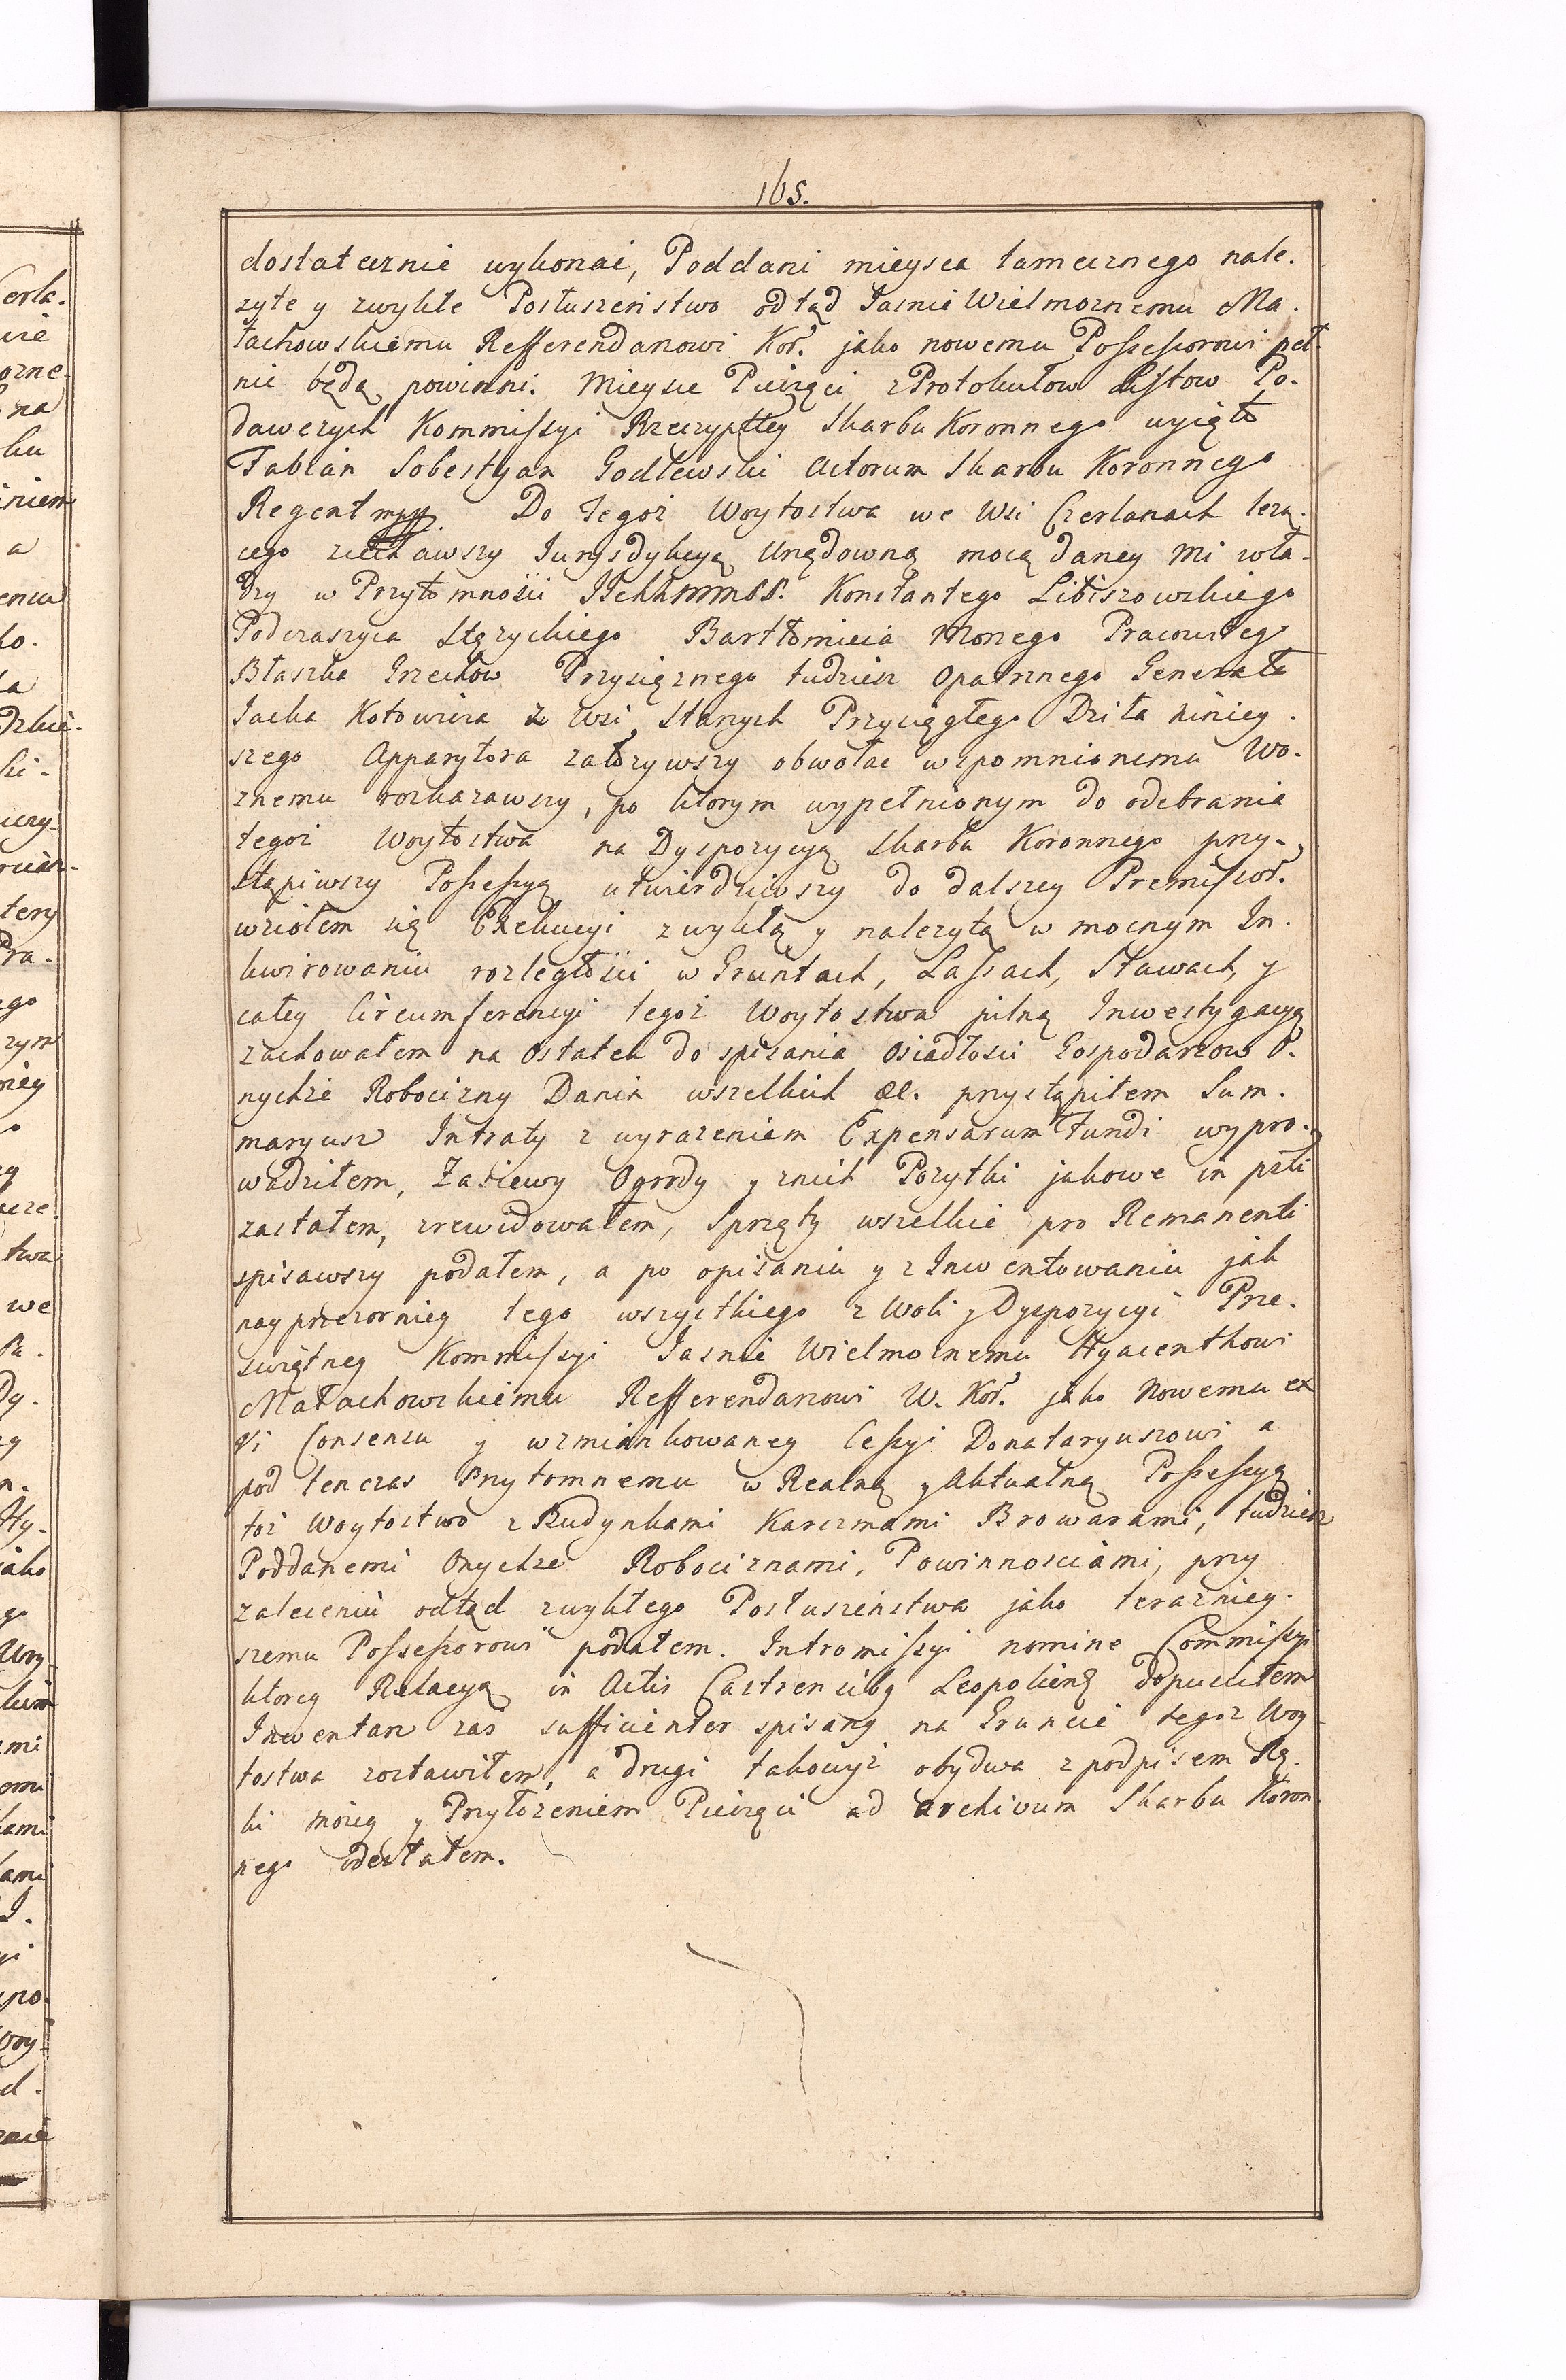 165.
dostatecznie wykonać, Poddani mieysca tamecznego nale.
żyte y zwykłe Posłuszeństwo odtąd Jaśnie Wielmożnemu Ma.
łachowskiemu Refferendarzowi Kor. jako nowemu Possessorowi peł.
nić będą powinni. Mieysce Pieczęci z Protokułow Listow Po.
dawczych Kommissyi Rzeczypttey Skarbu Koronnego wyięto
Fabian Sobestyan Godlewski Actorum Skarbu Koronnego
Regent mpp. Do tegoż Woytostwa we Wsi Czerlanach leżą.
cego ziechawszy Jurysdykcyą Urzędowną mocą daney mi wła.
dzy w Przytomności Konstantego Libiszowskiego
Podczaszyca Stężyckiego Bartłomieia Pracowitego
Błaszka Grzechow Przysiężnego tudziesz Opatrznego Generała
Jacka Kotowicza z Wsi Starych Przyciągłego Dziła niniey.
szego Apparytora założywszy obwołać wspomnionemu Wo.
źnemu rozkazawszy, po ktorym wypełnionym do odebrania
tegoż Woytostwa na Dyspozycyą Skarbu Koronnego przy.
stąpiwszy Possessyą utwierdziwszy do dalszey Premissor.
wziołem się Exekucyi zwykłą y należytą w mocnym In.
kwirowaniu rozległości w Gruntach, Lassach, Stawach, y
całey Circumferencyi tegoż Woytostwa pilną Inwestygacyą
zachowałem na ostatek do spisania Osiadłości Gospodarzow O.
nychże Robocizny Danin wszelkich &c. przystąpiłem Sum.
maryusz Intraty z wyrażeniem Expensarum Fundi wypro.
wadziłem, Zasiewy Ogrody y z nich Pożytki jakowe in pstti
zastałem, zrewidowałem, Sprzęty wszelkie pro Remanenti
spisawszy podałem, a po opisaniu y zInwentowaniu jak
nayprzezorniey tego wszystkiego z Woli y Dyspozycyi Prze.
świętney Kommissyi Jaśnie Wielmożnemu Hyacenthowi
Małachowskiemu Refferendarzowi W. Kor. jako Nowemu ex
Vi Consensu y wzmiankowaney Cessyi Donataryuszowi a
pod tenczas Przytomnemu w Realną y Aktualną Possessyą
toż Woytostwo z Budynkami Karczmami Browarami, tudziesz
Poddanemi Onychże Robociznami, Powinnościami, przy
zaleceniu odtąd zwykłego Posłuszeństwa jako teraźniey.
szemu Possessorowi podałem. Intromissyi nomine Commissyi
ktorey Relacyą in Actis Castrensibq Leopoliens dopuściłem
Inwentarz zaś sufficienter spisany na Gruncie tegoż Woy
tostwa zostawiłem, a drugi takowyż obydwa z podpisem Rę.
ki moiey y Przyłożeniem Pieczęci ad archivum Skarbu Koron
nego odesłałem.